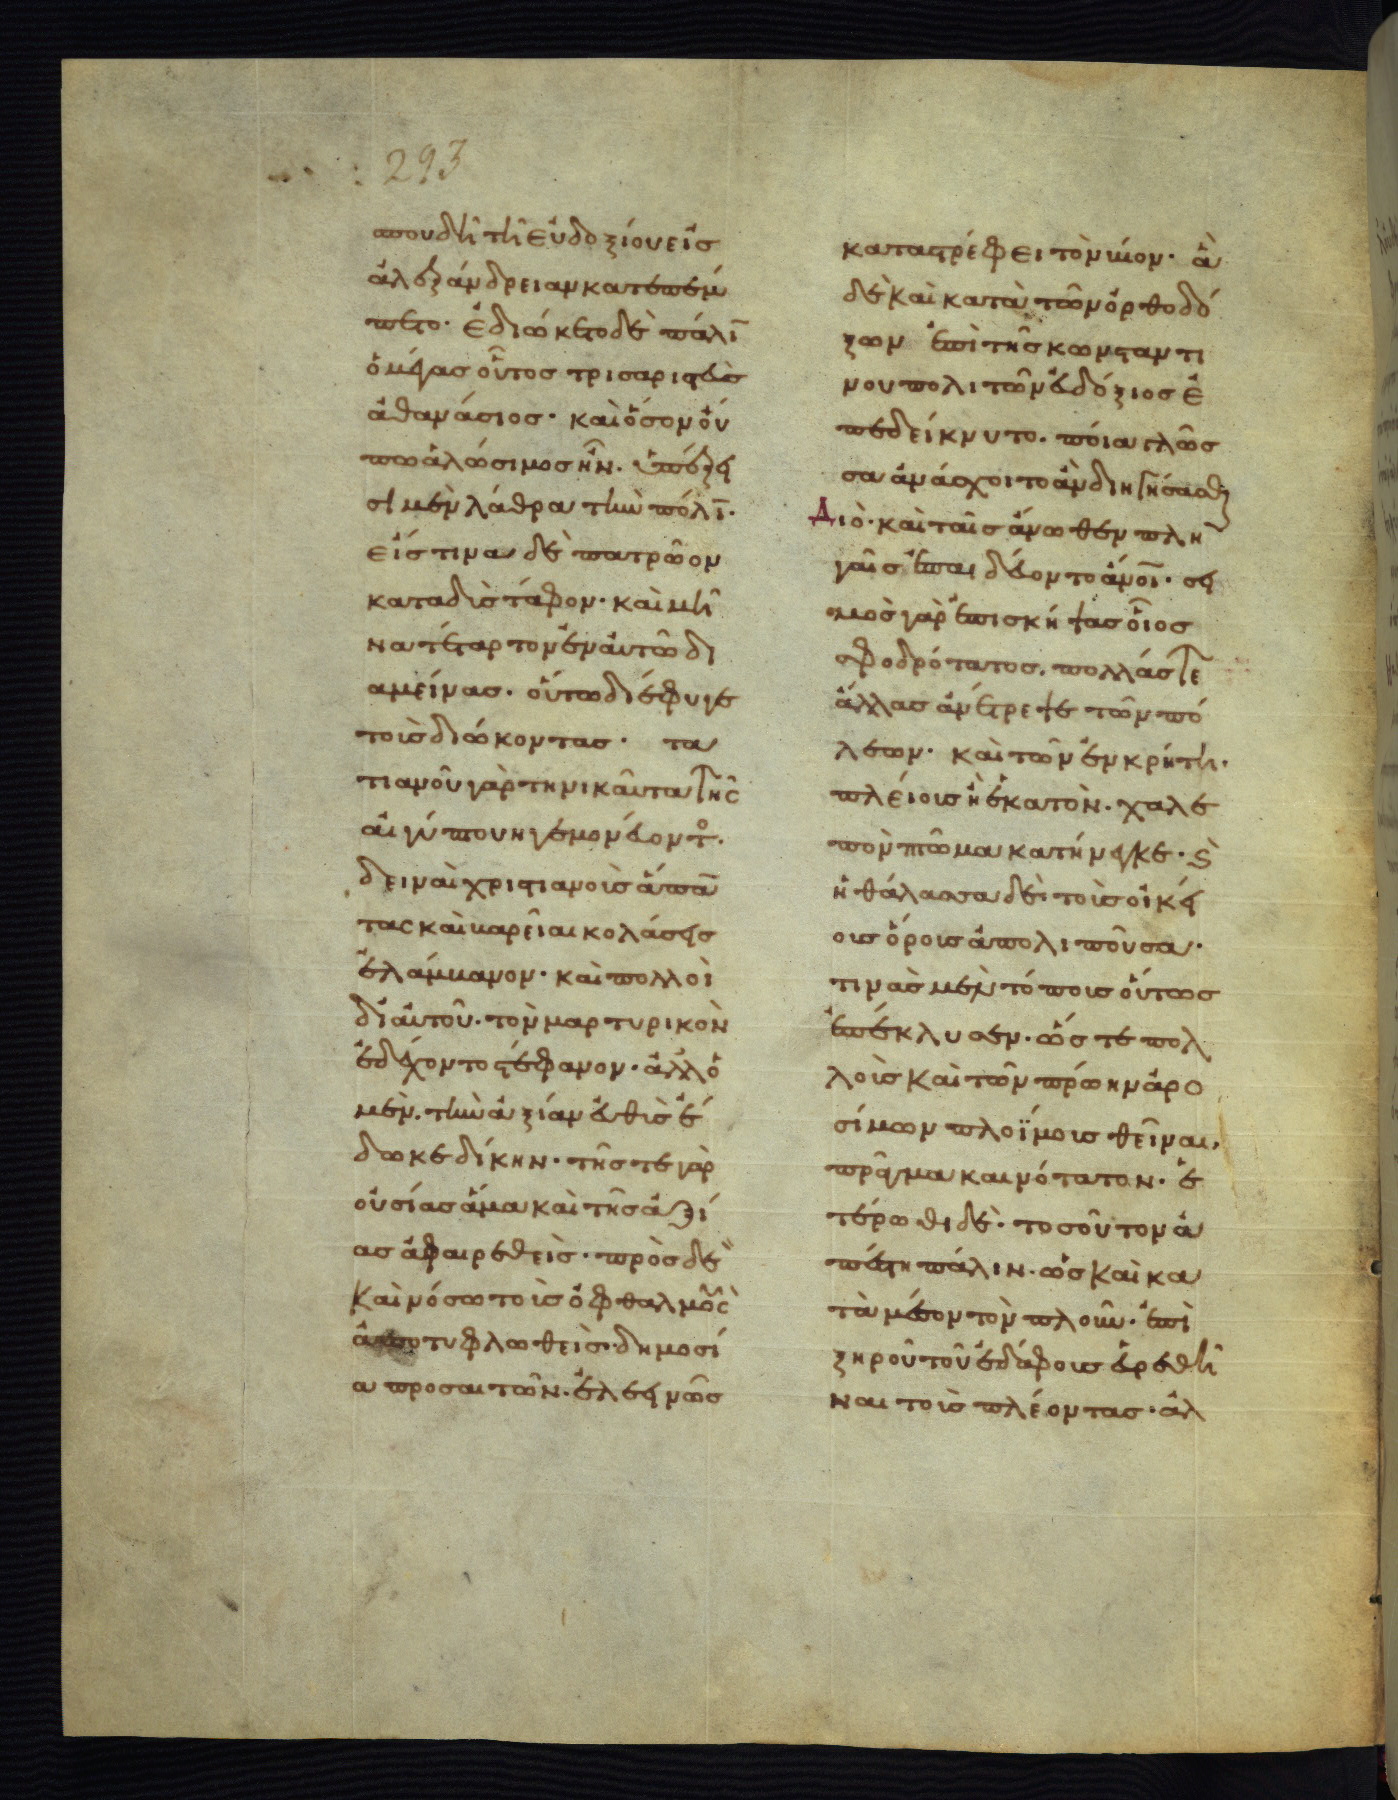 293
σπουδῆ τῆ εὐδοξίου εἰσ
ἀλεξάνδρειαν κατεπέμ
πετο· ἐδιώκετο δὲ πάλῑ
ὁ μέγασ οὗτοσ τρισαριστεὺσ
ἀθανάσιοσ· καὶ ὅσον οὔ
πω ἁλώσιμοσ ἦν. ὑπέξει
σι μὲν λάθρα τὴν πόλῑ·
εἴσ τινα δὲ πατρῶον
καταδὺσ τάφον· καὶ μῆ
να τέταρτον ἐν αὐτῶ δι
αμείνασ. οὕτω διέφυγε
τοὺσ διώκοντασ· τα
τιανοῦ γὰρ τηνικαῦτα τῆσ
αἰγύπτου ἡγεμονεύοντο·
δειναὶ χριστιανοὺσ ἅπᾱ
τασ καὶ βαρεῖαι κολάσεισ
ἐλάμβανον· καὶ πολλοὶ
δι αὐτοῦ· τὸν μαρτυρικὸν
ἐδέχοντο στέφανον· ἀλλ ὁ
μὲν. τὴν ἀξίαν εὐθὺσ ἐ
δωκε δίκην· τῆσ τε γὰρ
οὐσίασ ἅμα καὶ τῆσ ἀξί
ασ ἀφαιρεθεὶσ· πρὸσ δὲ
καὶ νόσω τοὺσ ὀφθαλμοὺσ
ἀποτυφλωθεὶσ· δημοσί
α προσαιτῶν· ἐλεεινῶσ
καταστρέφει τὸν βίον· ἃ
δὲ καὶ κατὰ τῶν ὀρθοδό
ξων ἐπὶ τῆσ κωνσταντι
νουπολιτῶν εὐδόξιοσ ἐ
πεδείκνυτο. ποία γλῶσ
σα ἀνάσχοιτο ἂν διηγήσασθαι
Διὸ· καὶ ταῖσ ἄνωθεν πλη
γαῖσ ἐπαιδεύοντο ἄνοι· σει
μὸσ γὰρ ἐπισκήψασ οἷοσ
σφοδρότατοσ. πολλάσ τε
ἄλλασ ἀνέτρεψε τῶν πό
λεων· καὶ τῶν ἐν κρήτη·
πλείουσ ἢ ἑκατὸν. χαλε
πὸν πτῶμα κατήνεγκε· καὶ
ἡ θάλασσα δὲ· τοὺσ οἰκεί
ουσ ὅρουσ ἀπολιποῦσα·
τινὰσ μὲν τόπουσ οὕτωσ
ἐπέκλυσεν· ὥστε πολ
λοὺσ καὶ τῶν πρώην ἀρο
σίμων πλοΐμουσ θεῖναι,
πρᾶγμα καινότατον· ἑ
τέρωθι δὲ· τοσοῦτον ἀ
πέστη πάλιν. ὡσ καὶ κα
τὰ μέσον τὸν πλοῦν· ἐπὶ
ξηροῦ τοῦ ἐδάφουσ εὑρεθῆ
ναι τοὺσ πλέοντασ· ἀλ